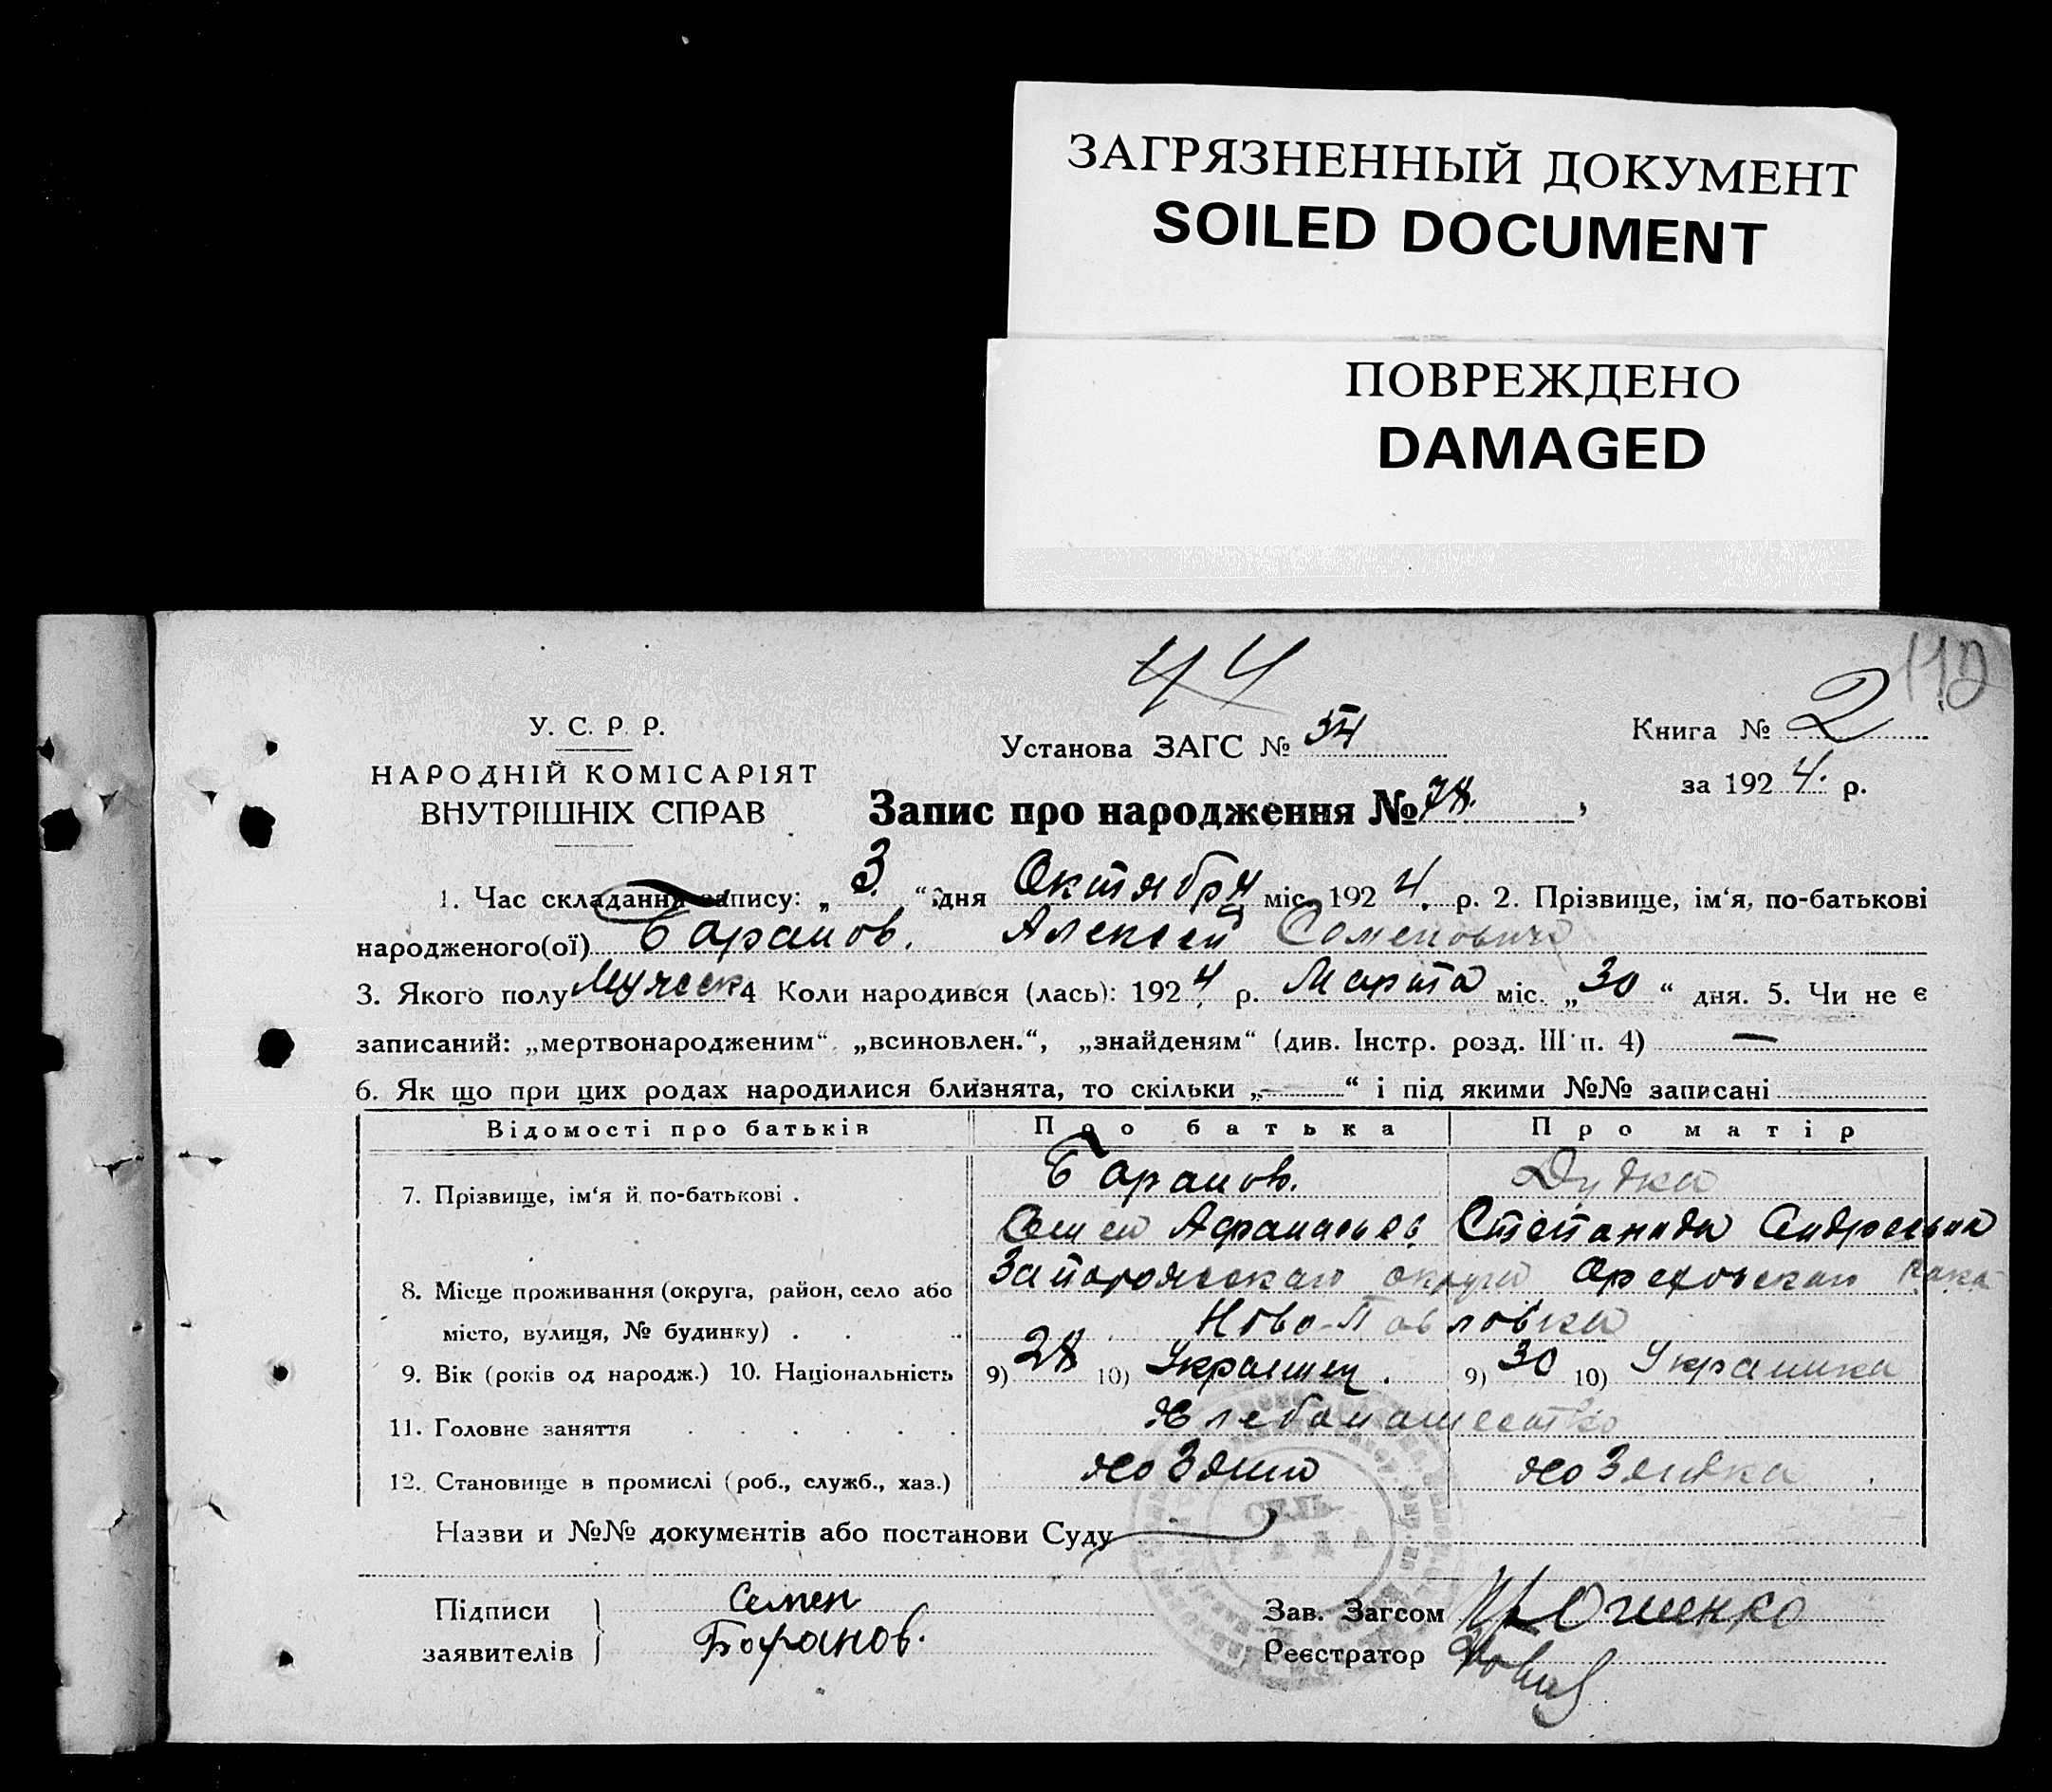 ЗАГРЯЗНЕННЫЙ ДОКУМЕНТ
SOILED DOCUMENT
ПОВРЕЖДЕНО
DAMAGED
44
У. С. Р. Р.
НАРОДНІЙ КОМІСАРІЯТ
ВНУТРІШНІХ СПРАВ
Установа ЗАГС № 54
Книга № 2
за 1924 р.
Запис про народження № 78.
1. Час складання запису: „3.“ дня Октября міс. 1924. р. 2. Прізвище, ім‘я, по-батькові
народженого(ої) Баранов. Алексей Семенович
3. Якого полу Мужеск 4 Коли народився (лась): 1924. р. Марта міс. „30“ дня. 5. Чи не є
записаний: „мертвонародженим“, „всиновлен.“, „знайденям“ (див. Інстр. розд. III п. 4) —
6. Як що при цих родах народилися близнята, то скільки „—“ і під якими №№ записані
Відомості про батьків Про батька Про матір
7. Прізвище, ім‘я й по-батькові . Баранов. Дудка
Семен Афанасьев Степанида Андреевна
8. Місце проживання (округа, район, село або Запорожскаго округи Ореховскаго
місто, вулиця, № будинку) . . . Ново-Павловка
9. Вік (років од народж.) 10. Національність 9) 28 10) Украинец. 9) 30 10) Украинка
11. Головне заняття . . . . . . Хлебопашество
12. Становище в промислі (роб., служб., хаз.) хозяин хозяйка
Назви и №№ документів або постанови Суду
СЕЛЬ-
Підписи Семен
заявителів Баранов.
Зав. Загсом
Реєстратор